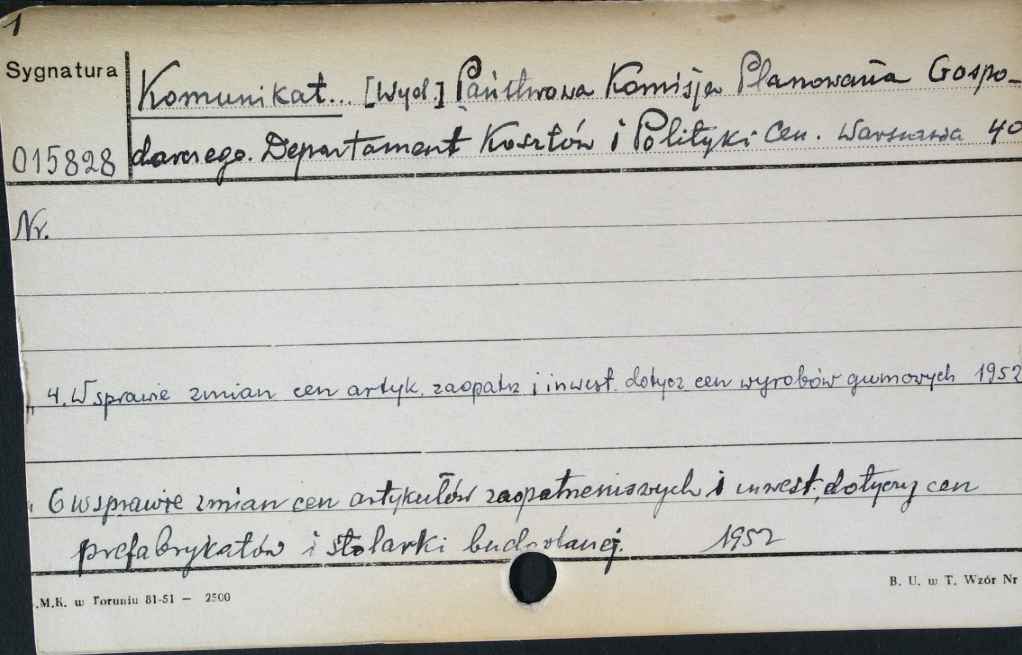 1
Sygnatura
Komunikat... [Wyd.] Państwowa Komisja Planowania Gospo-
015828 darczego. Departament Kosztów i Polityki Cen. Warszawa 40
Nr.
" 4. W sprawie zmian cen artyk. zaopatrz i inwest. dotycz cen wyrobów gumowych 1952
" 6 w sprawie zmian cen artykułów zaopatrzeniowych i inwest. dotyczy cen
prefabrykatów i stolarki budowlanej. 1952
.M.K. w Toruniu 81-51 — 2500
B. U. w T. Wzór Nr